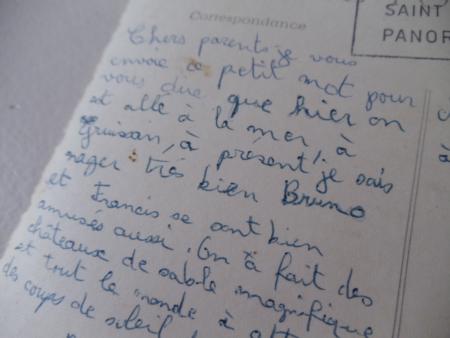 Correspondance
SAINT
PANOR
Chers parents je vous
envoie ce petit mot pour
vous dire que hier on
est allé à la mer, à
Gruissan, à présent je sais
nager très bien Bruno
et Francis se sont bien
amusés aussi. On a fait des
châteaux de sable magnifique
et tout le monde à
des coups de soleil